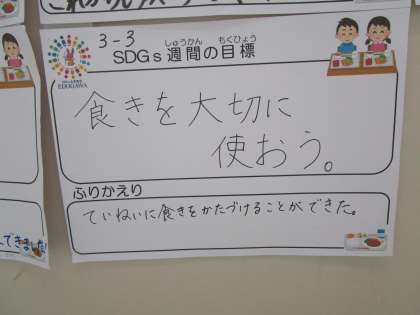 3-3
しゅうかん ちくひょう
SDGs週間の目標
EDOGAWA
食きを大切に
使おう。
ふりかえり
ていねいに食きをかたづけることができた。
できました